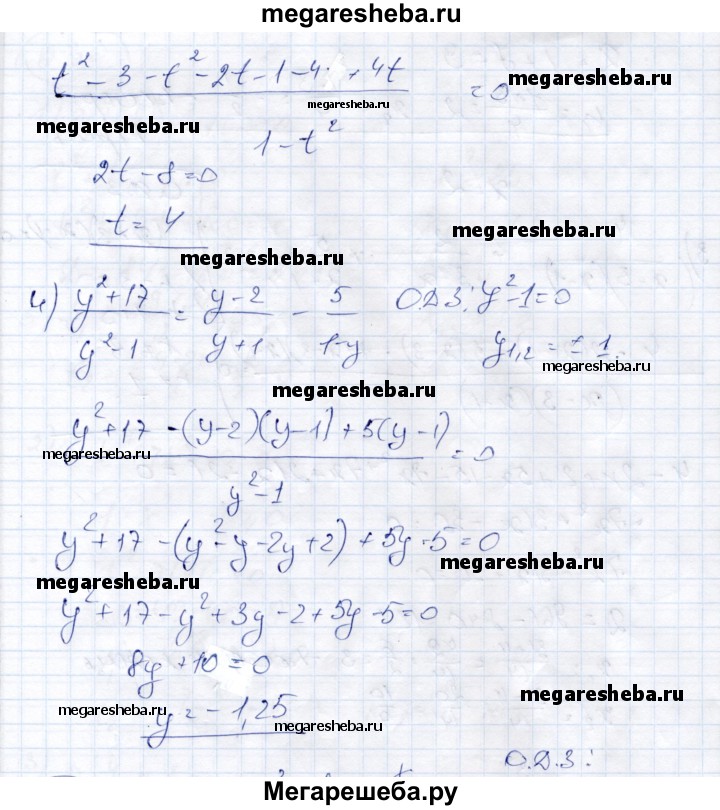 megaresheba.ru
t² - 3 - t² - 2t - 1 - 4 + 4t
megaresheba.ru
megaresheba.ru
= 0
megaresheba.ru
1 - t²
2t - 8 = 0
t = 4
megaresheba.ru
megaresheba.ru
4) y² + 17 / y² - 1 = y - 2 / y + 1 - 5 / 1 - y О.Д.З: y² - 1 = 0
y₁,₂ = ± 1
megaresheba.ru
megaresheba.ru
y² + 17 - (y - 2)(y - 1) + 5(y - 1)
megaresheba.ru
= 0
y² - 1
y² + 17 - (y² - y - 2y + 2) + 5y - 5 = 0
megaresheba.ru
megaresheba.ru
y² + 17 - y² + 3y - 2 + 5y - 5 = 0
8y + 10 = 0
megaresheba.ru
megaresheba.ru
y = - 1,25
megaresheba.ru
О.Д.З:
Мегарешеба.ру